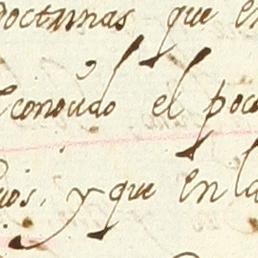 doctrinas que en
conocido el poco
cios, y que en la